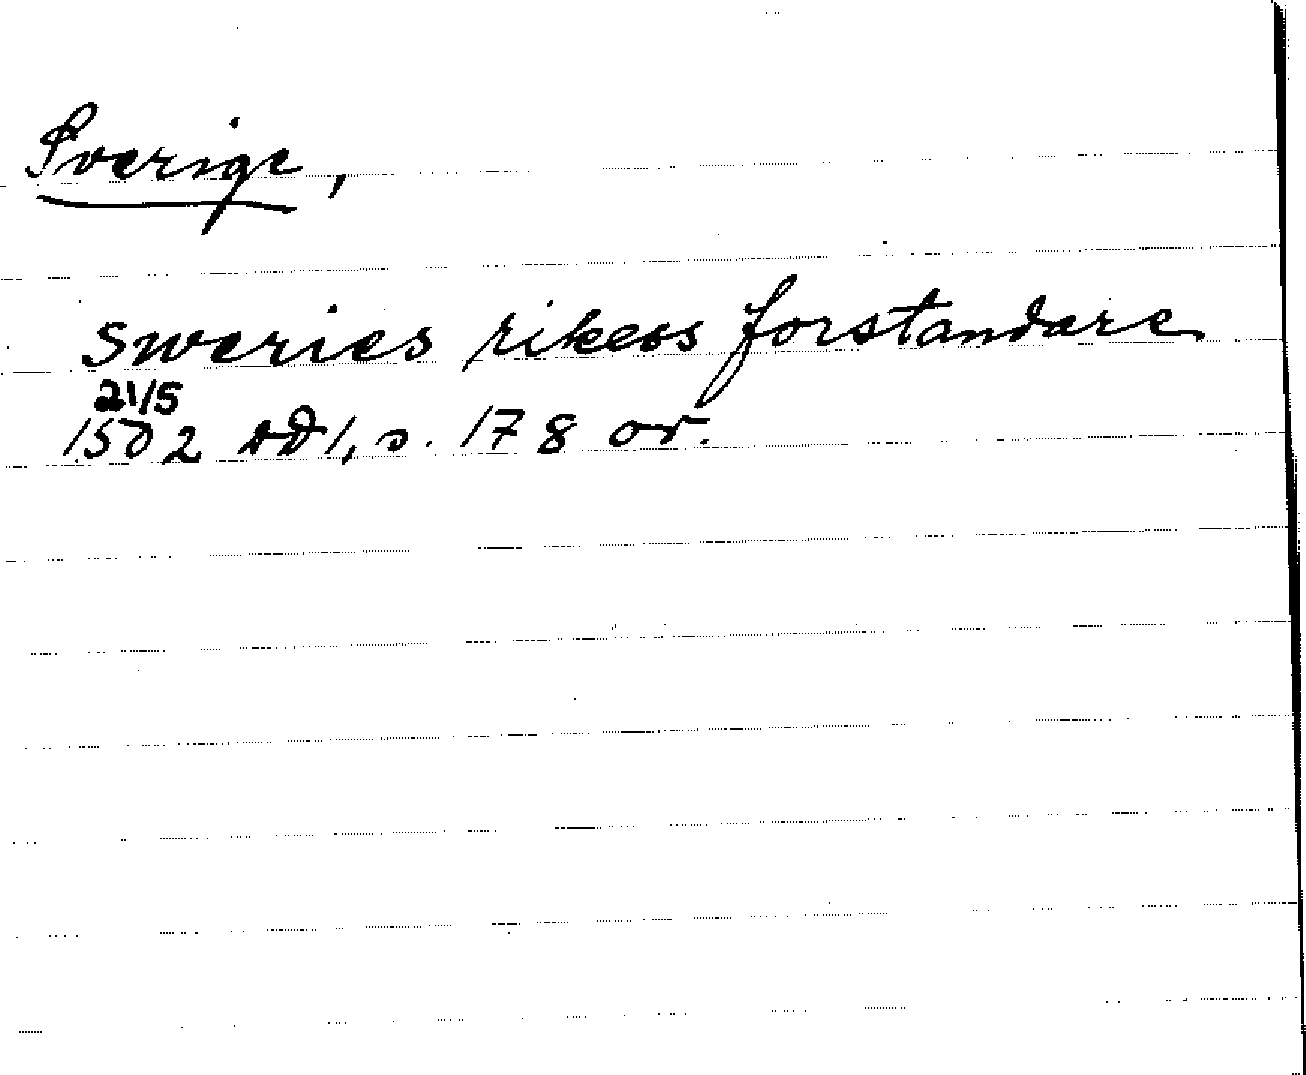 Sverige,
sweries rikess forstandare
21/5
1502 DD 1, s. 178 or.